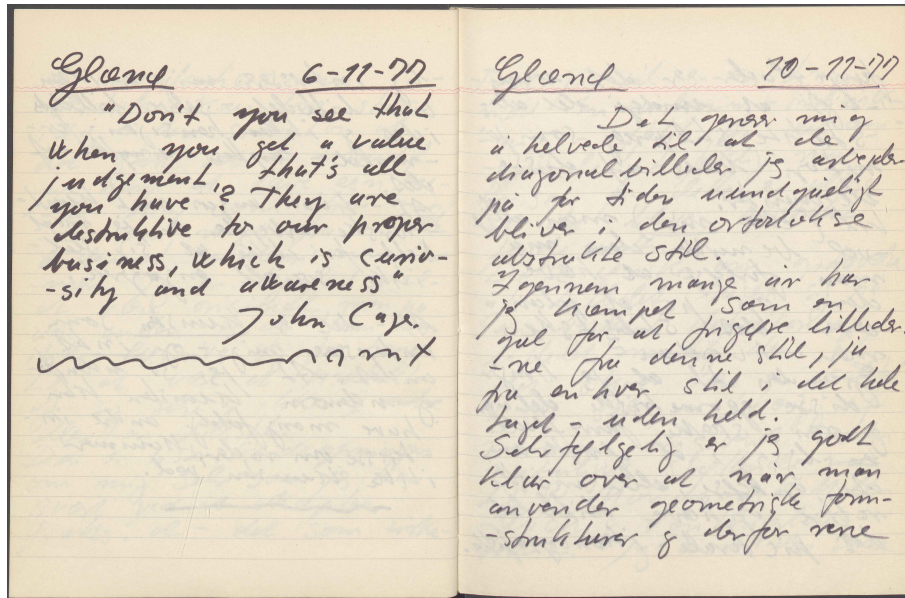 Gland 6-11-77
"Don't you see that
when you get a value
judgement, that's all
you have? They are
destruktive to our proper
business, which is curio-
-sity and awareness"
John Cage.
Gland 10-11-77
Det generer mig
i helvede til at de
diagonalbilleder jeg arbejder
på for tiden uundgåeligt
bliver i den ortodokse
abstrakte stil.
Igennem mange år har
jeg kæmpet som en
gal for at frigøre billeder-
-ne fra denne stil, ja
fra enhver stil i det hele
taget - uden held.
Selvfølgelig er jeg godt
klar over at når man
anvender geometriske form-
-strukturer og derfor rene